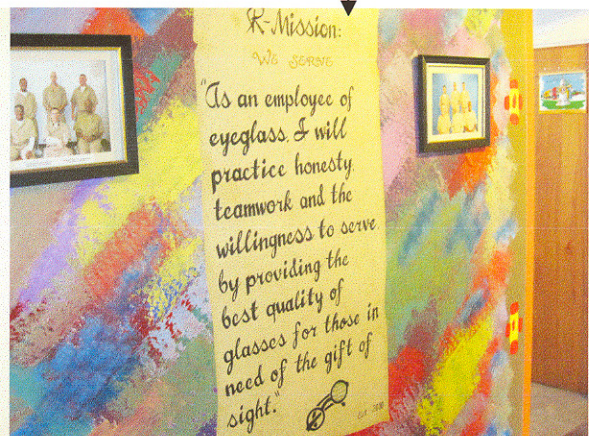 R-Mission:
WE SERVE
"As an employee of
eyeglass. I will
practice honesty.
teamwork and the
willingness to serve
by providing the
best quality of
glasses for those in
need of the gift of
sight."